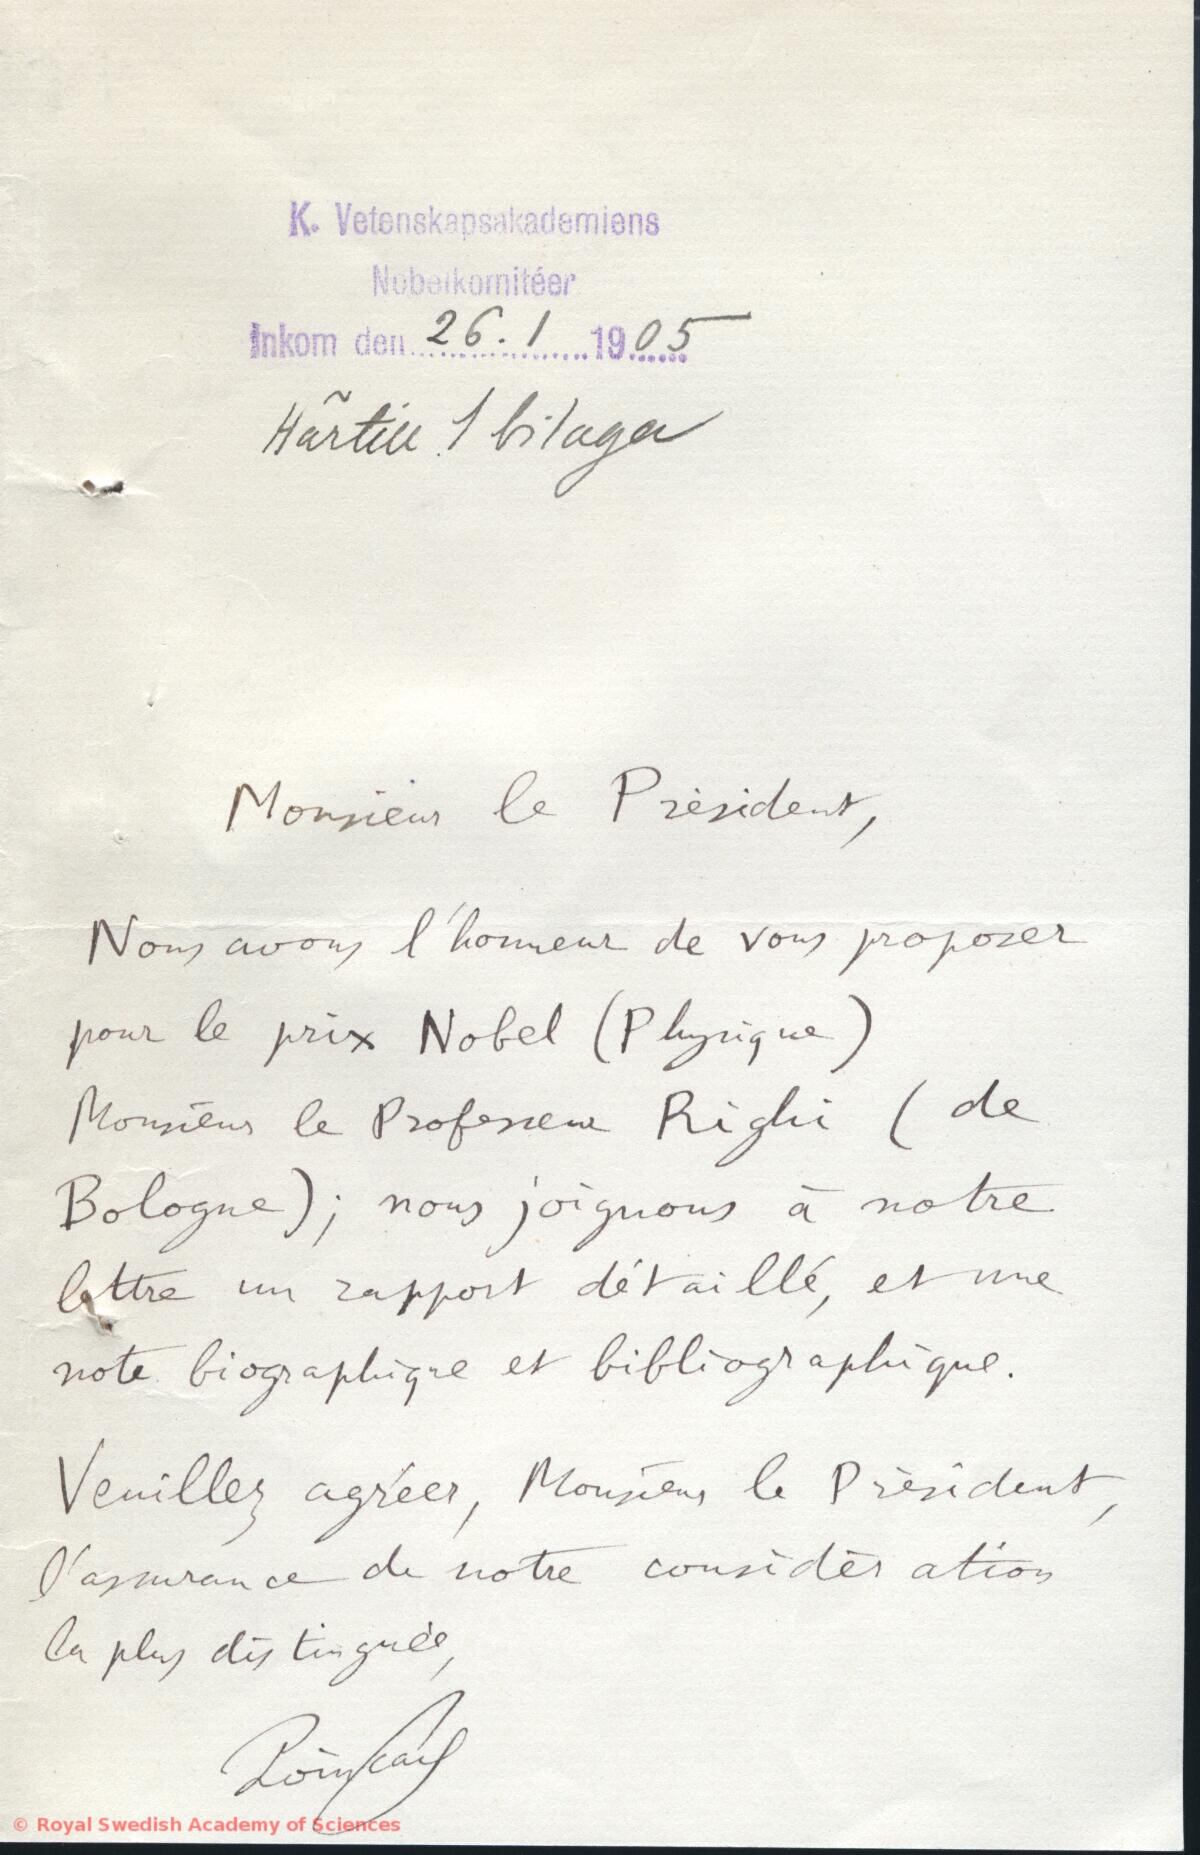 K. Vetenskapsakademiens
Nobelkomitéer
Inkom den 26.1 1905
Härtill 1 bilaga
Monsieur le Président,
Nous avons l'honneur de vous proposer
pour le prix Nobel (Physique)
Monsieur le Professeur Righi (de
Bologne); nous joignons à notre
lettre un rapport détaillé, et une
note biographique et bibliographique.
Veuillez agréer, Monsieur le Président,
l'assurance de notre considération
la plus distinguée,
Poincaré
© Royal Swedish Academy of Sciences